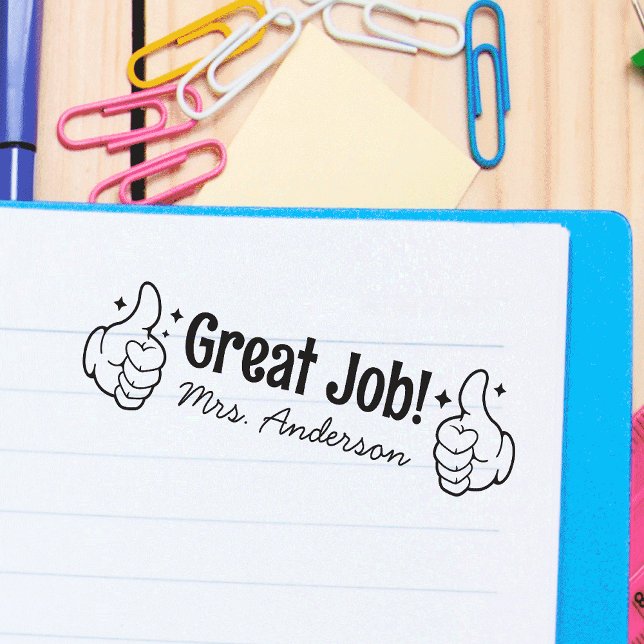 Great Job!
Mrs. Anderson